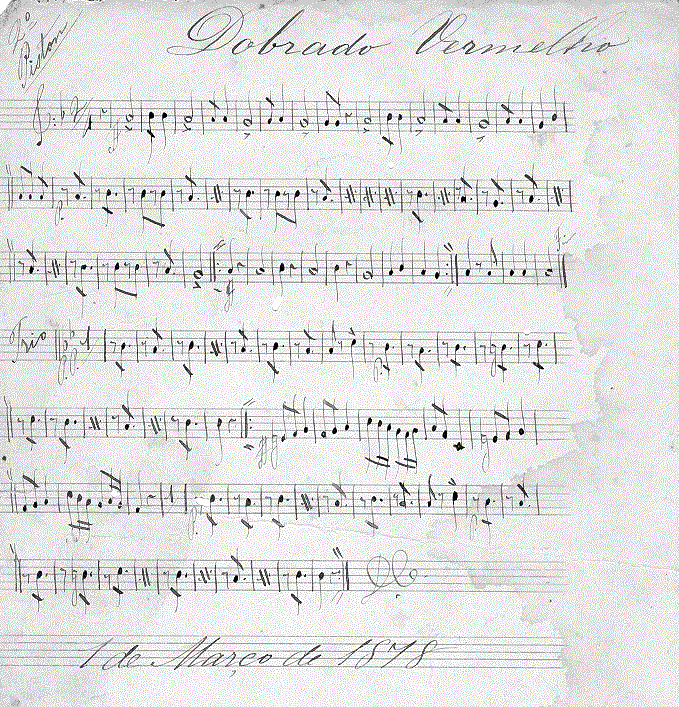 2º
Piston
Dobrado Vermelho
Trio
1 de Março de 1878